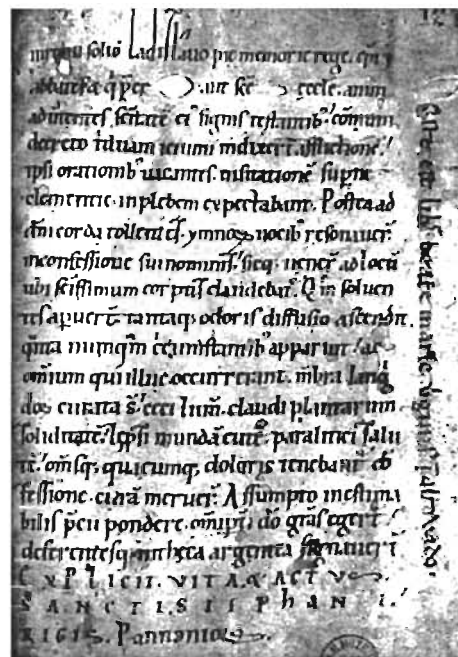 solio Ladislauo pie memorie rege. epi &
aūt scē eccle.
aduertentes. scītate ei' signis restantib' comuni
decreto tduum ieiunii indixert. afflictione.
ipsi orationib' uacantes. uisitatione supne
clementie. in plebem expectabant. Postea ad
dm corda tollentes. ymnos uocib' resonauer.
in confessione sui nominis. sicq; uener ad locu
ubi scissimum corpus claudebat. in soluen
tes apuert. tantaq; odoris diffusio ascendit.
qnta numqm circumstantib' apparuit. ac
omium qui illuc occurrerant. mbra
curata s. ceci lum. claudi plantarum
soliditate. lepsi mundā cutē. paralitici salu
te. omsq; quicumq; doloris tenebant ob
sessione. curā meruer. Assumpto inestima
bilis pcii pondere. omipti do gras egert.
deferentesq; in theca argentea
EXPLICIT. VITA. & ACTUS.
SANCTI. STEPHANI.
REGIS. Pannonioru.
Iste. est. lib. beate marie. virginis